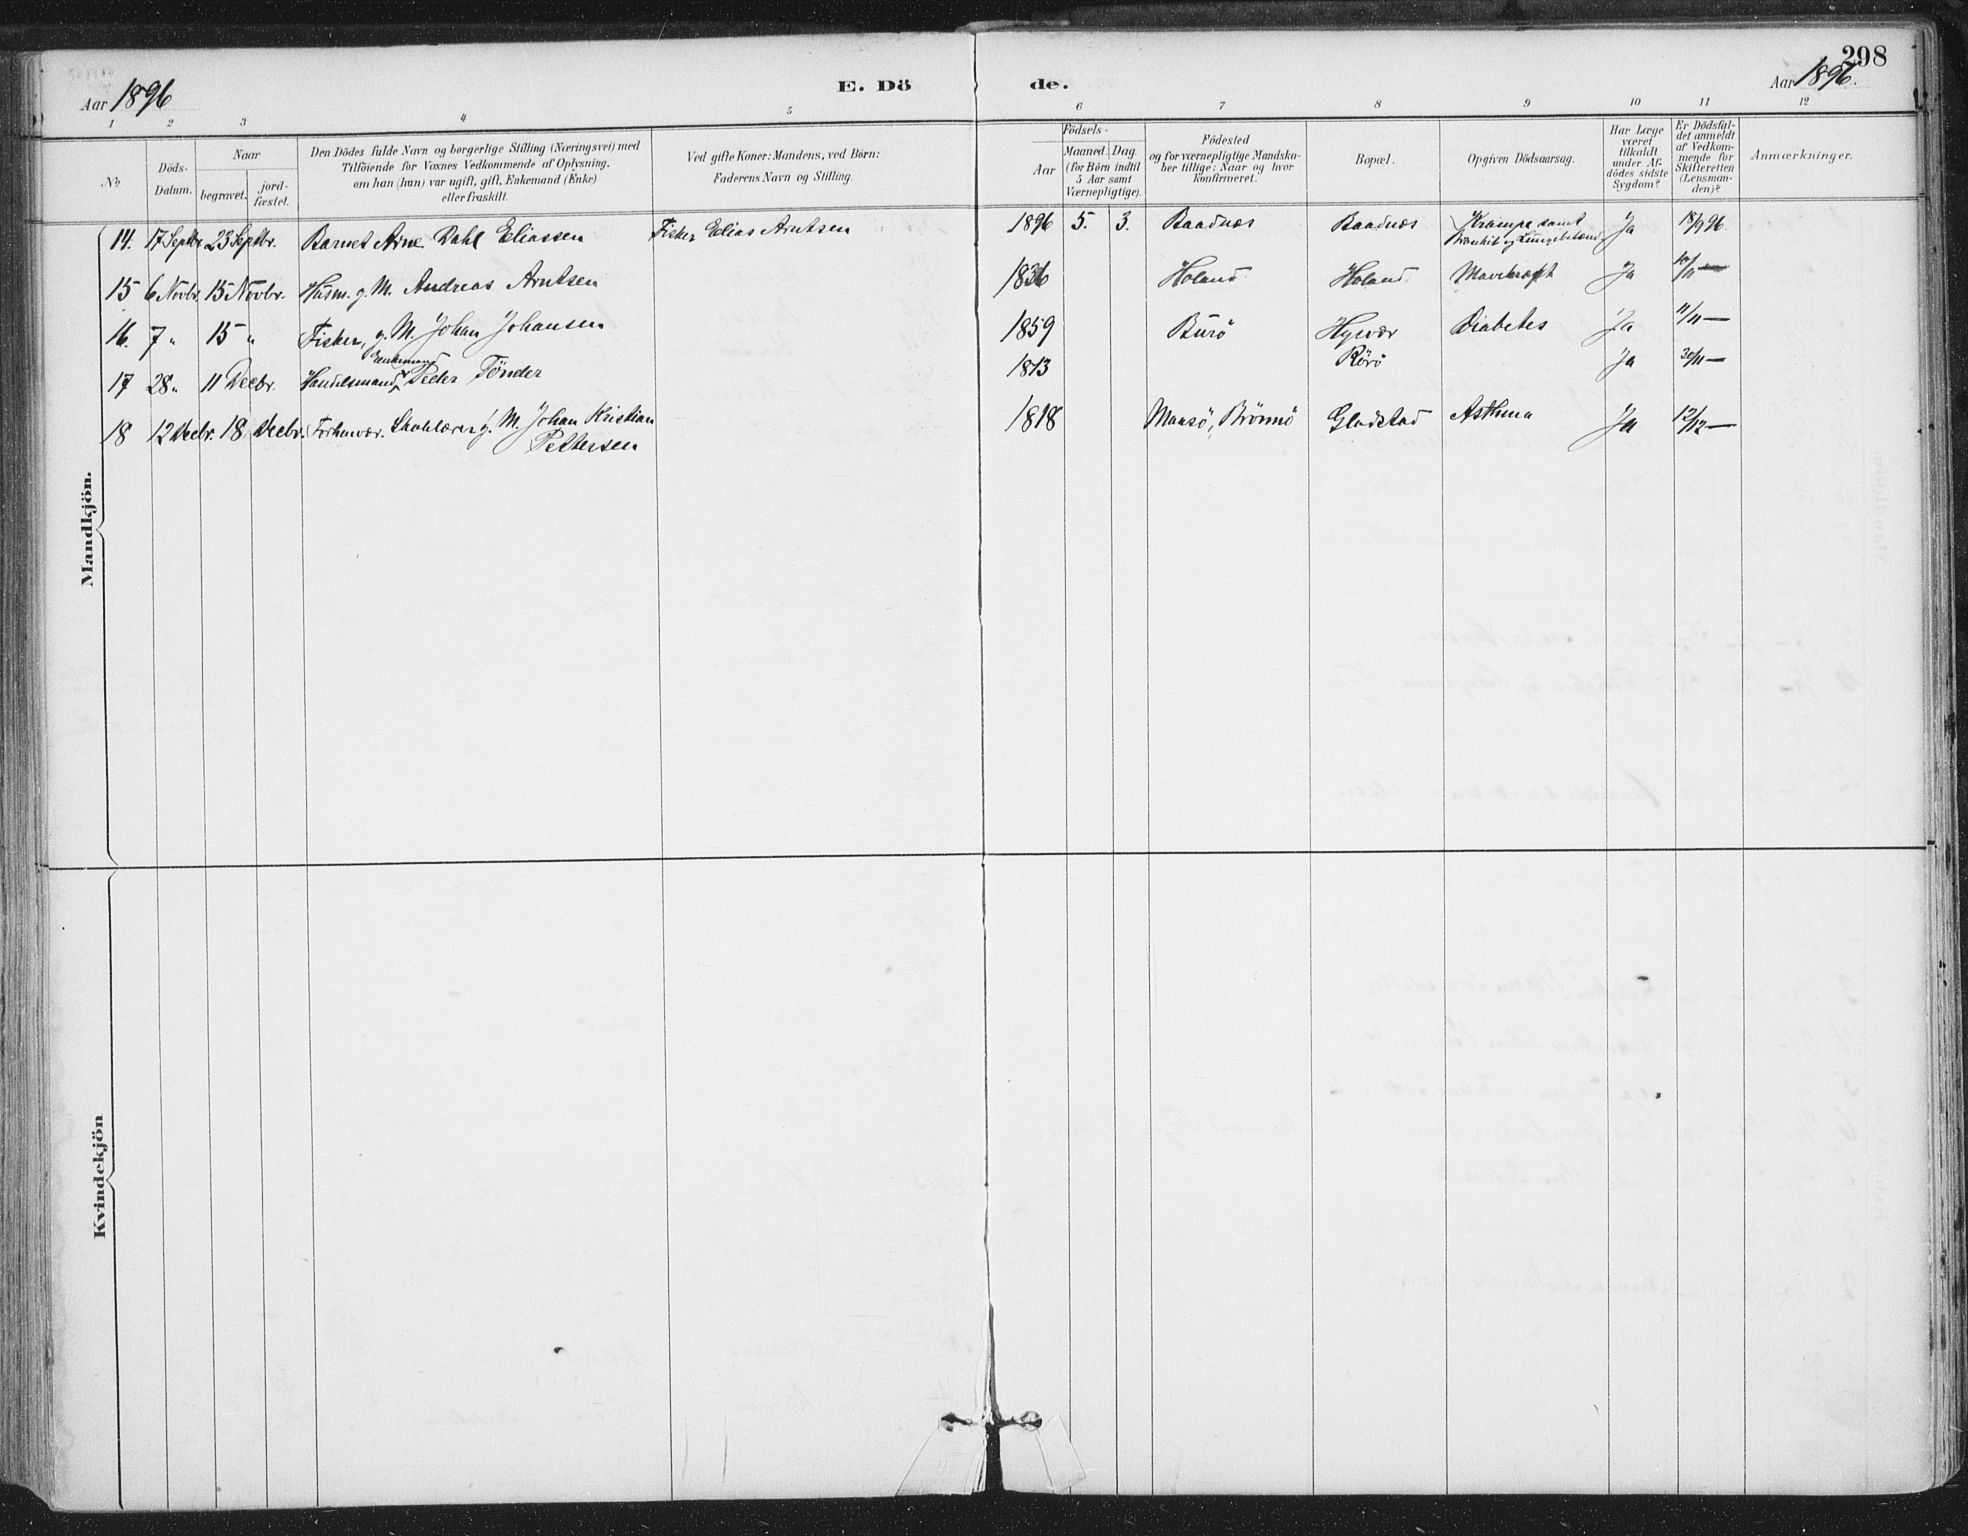 298
Aar 1896
E. Dö
de.
Aar 1896.
1 2 3 4 5 6 7 8 9 10 11 12
No
Döds-
Datum.
Naar
begravet.
jord-
fæstet.
Den Dödes fulde Navn og borgerlige Stilling (Næringsvei) med
Tilföiende for Voxnes Vedkommende af Oplysning,
om han (hun) var ugift, gift, Enkemand (Enke)
eller fraskilt.
Ved gifte Koner: Mandens, ved Börn:
Faderens Navn og Stilling.
Födsels-
Aar
Maaned. Dag.
(for Börn indtil
5 Aar samt
Værnepligtige).
Födested
og for værnepligtige Mandska-
ber tillige: Naar og hvor
konfirmeret.
Bopæl.
Opgiven Dödsaarsag.
Har Læge
været
tilkaldt
under Af-
dödes sidste
Sygdom?
Er Dödsfal-
det anmeldt
af Vedkom-
mende for
Skifteretten
(Lensman-
den)?
Anmærkninger.
Mandkjön.
14. 17 Septbr. 23 Septbr. Barnet Arne Dahl Eliassen Fisker Elias Arntsen 1896 5. 3. Baadnæs Baadnæs Krampe samt Ja 18/9 96
Bronkit og Lungebetænd.
15 6 Novbr. 15 Novbr. Husm. g. M. Andreas Arntsen 1836 Holand Holand Mavekræft Ja 10/11 —
16. 7 " 15 " Fisker, g. M. Johan Johansen 1859 Burö Hysvær Diabetes Ja 11/11 —
Enkemand
17 28 " 11 Decbr. Handelsmand Peder Tönder 1813 Rörö Ja 30/11 —
18 12 Decbr. 18 Decbr. Forhenvær. Skolelærer g. M. Johan Kristian 1818 Maasö, Brönnö Gladstad Asthma Ja 12/12 —
Pettersen
Kvindekjön